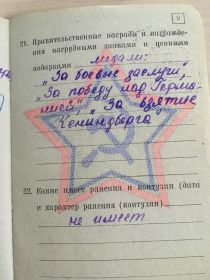 9
21. Правительственные награды и награжде-
ния нагрудными знаками и ценными
подарками медали:
„За боевые заслуги",
„За победу над Герма-
нией", „За взятие
Кенигсберга
22. Какие имеет ранения и контузии (дата
и характер ранения (контузии)
не имеет